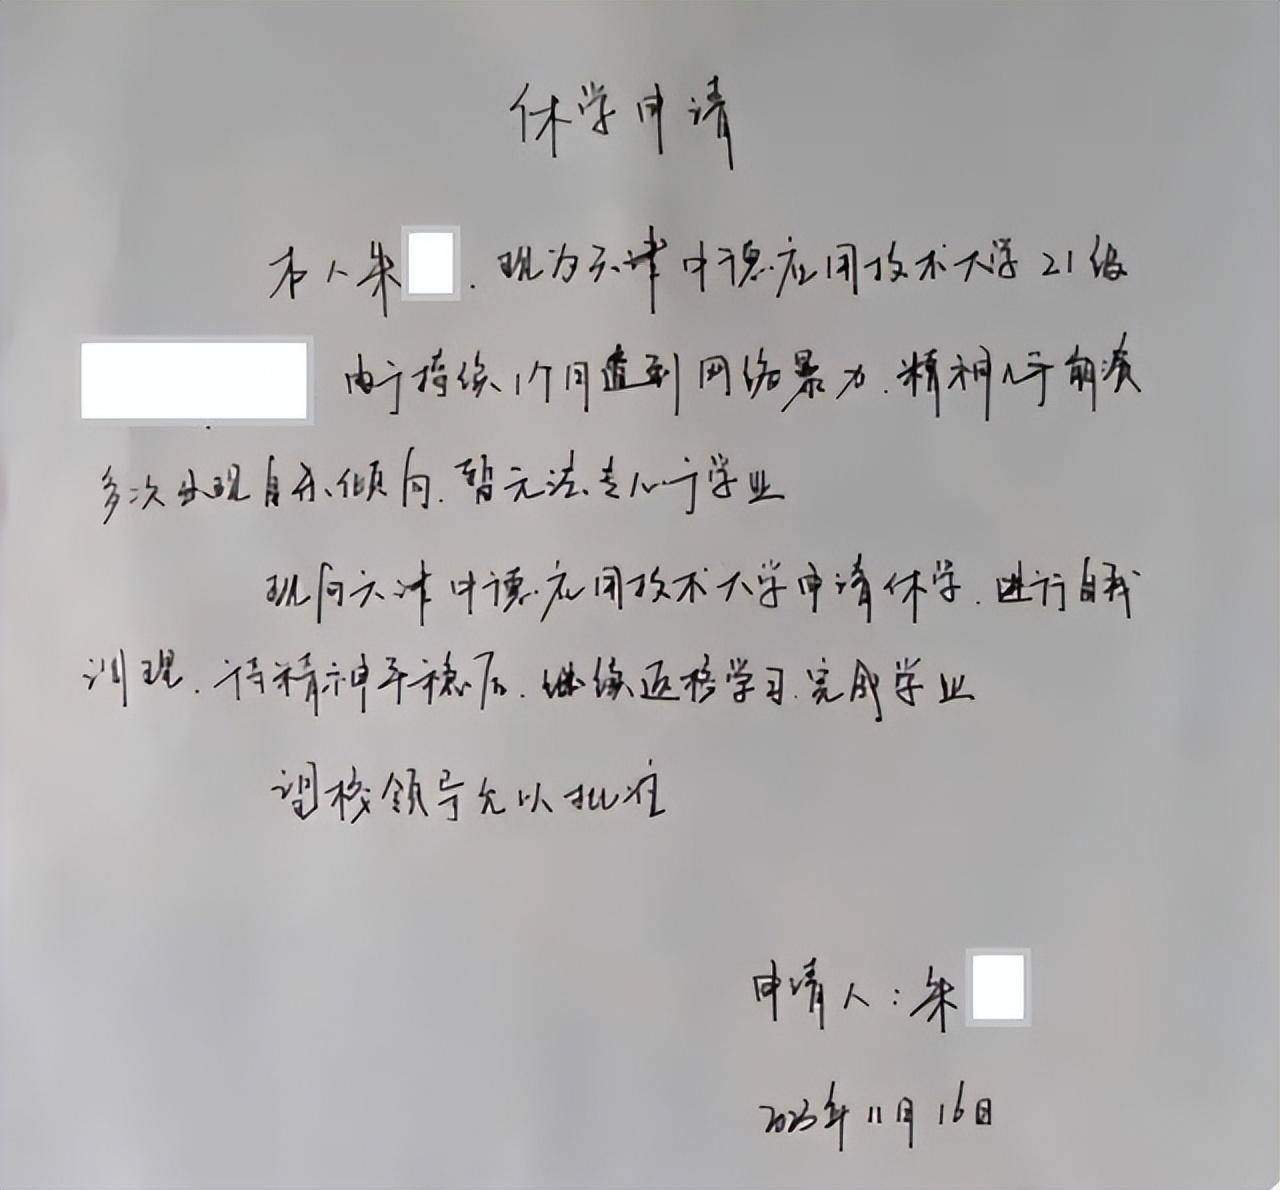 休学申请
本人朱 . 现为天津中德应用技术大学21级
由于持续1个月遭到网络暴力.精神几于崩溃
多次出现自杀倾向.暂无法专心于学业
现向天津中德应用技术大学申请休学.进行自我
调理.待精神平稳后.继续返校学习.完成学业
望校领导允以批准
申请人:朱
2023年11月16日